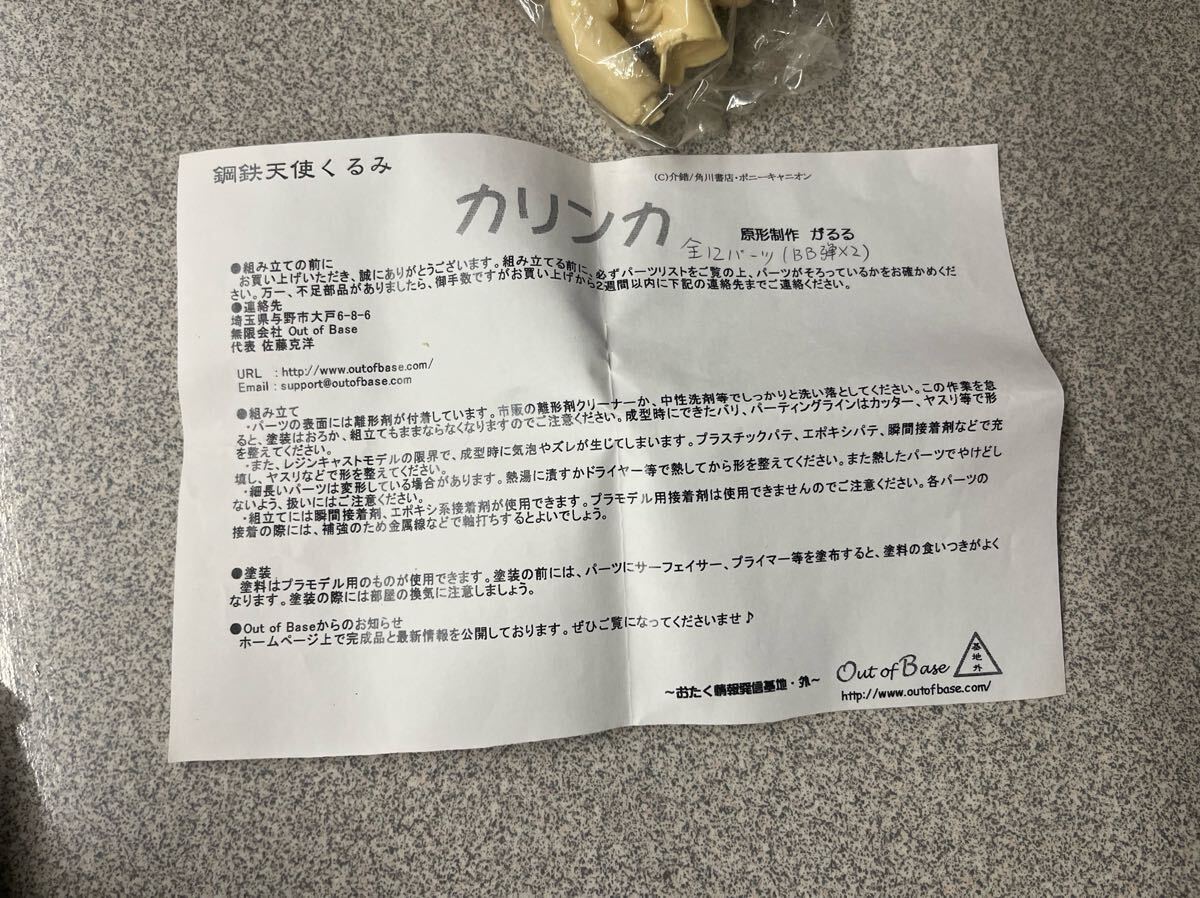 鋼鉄天使くるみ
(C)介錯/角川書店・ポニーキャニオン
カリンカ
原形制作 がるる
全12パーツ(BB弾×2)
●組み立ての前に
お買い上げいただき、誠にありがとうございます。組み立てる前に、必ずパーツリストをご覧の上、パーツがそろっているかをお確かめくだ
さい。万一、不足部品がありましたら、御手数ですがお買い上げから2週間以内に下記の連絡先までご連絡ください。
●連絡先
埼玉県与野市大戸6-8-6
無限会社 Out of Base
代表 佐藤克洋
URL :http://www.outofbase.com/
Email:support@outofbase.com
●組み立て
・パーツの表面には離形剤が付着しています。市販の離形剤クリーナーか、中性洗剤等でしっかりと洗い落としてください。この作業を怠
ると、塗装はおろか、組立てもままならなくなりますのでご注意ください。成型時にできたバリ、パーティングラインはカッター、ヤスリ等で形
を整えてください。
・また、レジンキャストモデルの限界で、成型時に気泡やズレが生じてしまいます。プラスチックパテ、エポキシパテ、瞬間接着剤などで充
填し、ヤスリなどで形を整えてください。
・細長いパーツは変形している場合があります。熱湯に漬すかドライヤー等で熱してから形を整えてください。また熱したパーツでやけどし
ないよう、扱いにはご注意ください。
・組立てには瞬間接着剤、エポキシ系接着剤が使用できます。プラモデル用接着剤は使用できませんのでご注意ください。各パーツの
接着の際には、補強のため金属線などで軸打ちするとよいでしょう。
●塗装
塗料はプラモデル用のものが使用できます。塗装の前には、パーツにサーフェイサー、プライマー等を塗布すると、塗料の食いつきがよく
なります。塗装の際には部屋の換気に注意しましょう。
●Out of Baseからのお知らせ
ホームページ上で完成品と最新情報を公開しております。ぜひご覧になってくださいませ♪
～おたく情報発信基地・外～
Out of Base
基地外
http://www.outofbase.com/